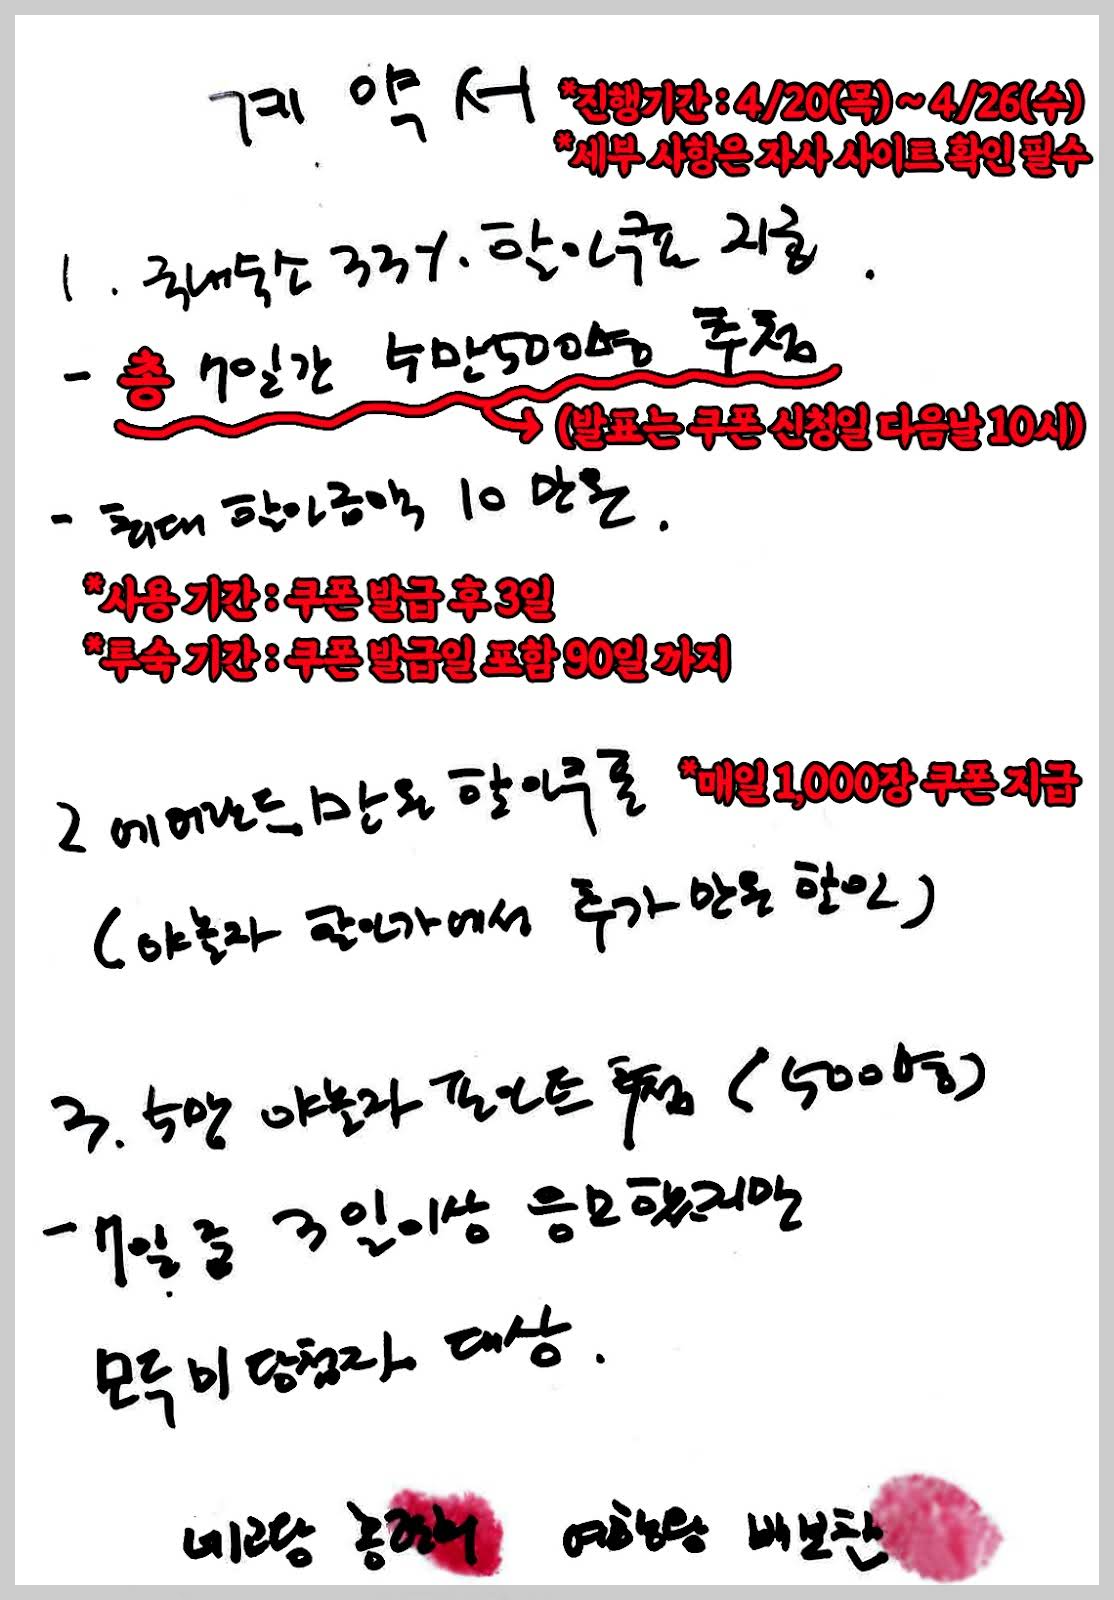 계약서
*진행기간 : 4/20(목) ~ 4/26(수)
*세부 사항은 자사 사이트 확인 필수
1. 국내숙소 33%. 할인쿠폰 지급.
- 총 7일간 5만500명 추첨
(발표는 쿠폰 신청일 다음날 10시)
- 최대 할인금액 10만원.
*사용 기간 : 쿠폰 발급 후 3일
*투숙 기간 : 쿠폰 발급일 포함 90일 까지
2 에버랜드 1만원 할인쿠폰 *매일 1,000장 쿠폰 지급
(야놀자 할인가에서 추가 만원 할인)
3. 5만 야놀자 포인트 추첨 (500명)
- 7일 중 3일이상 응모했지만
모두 미당첨자 대상.
네고왕 홍현희 여행왕 배보찬